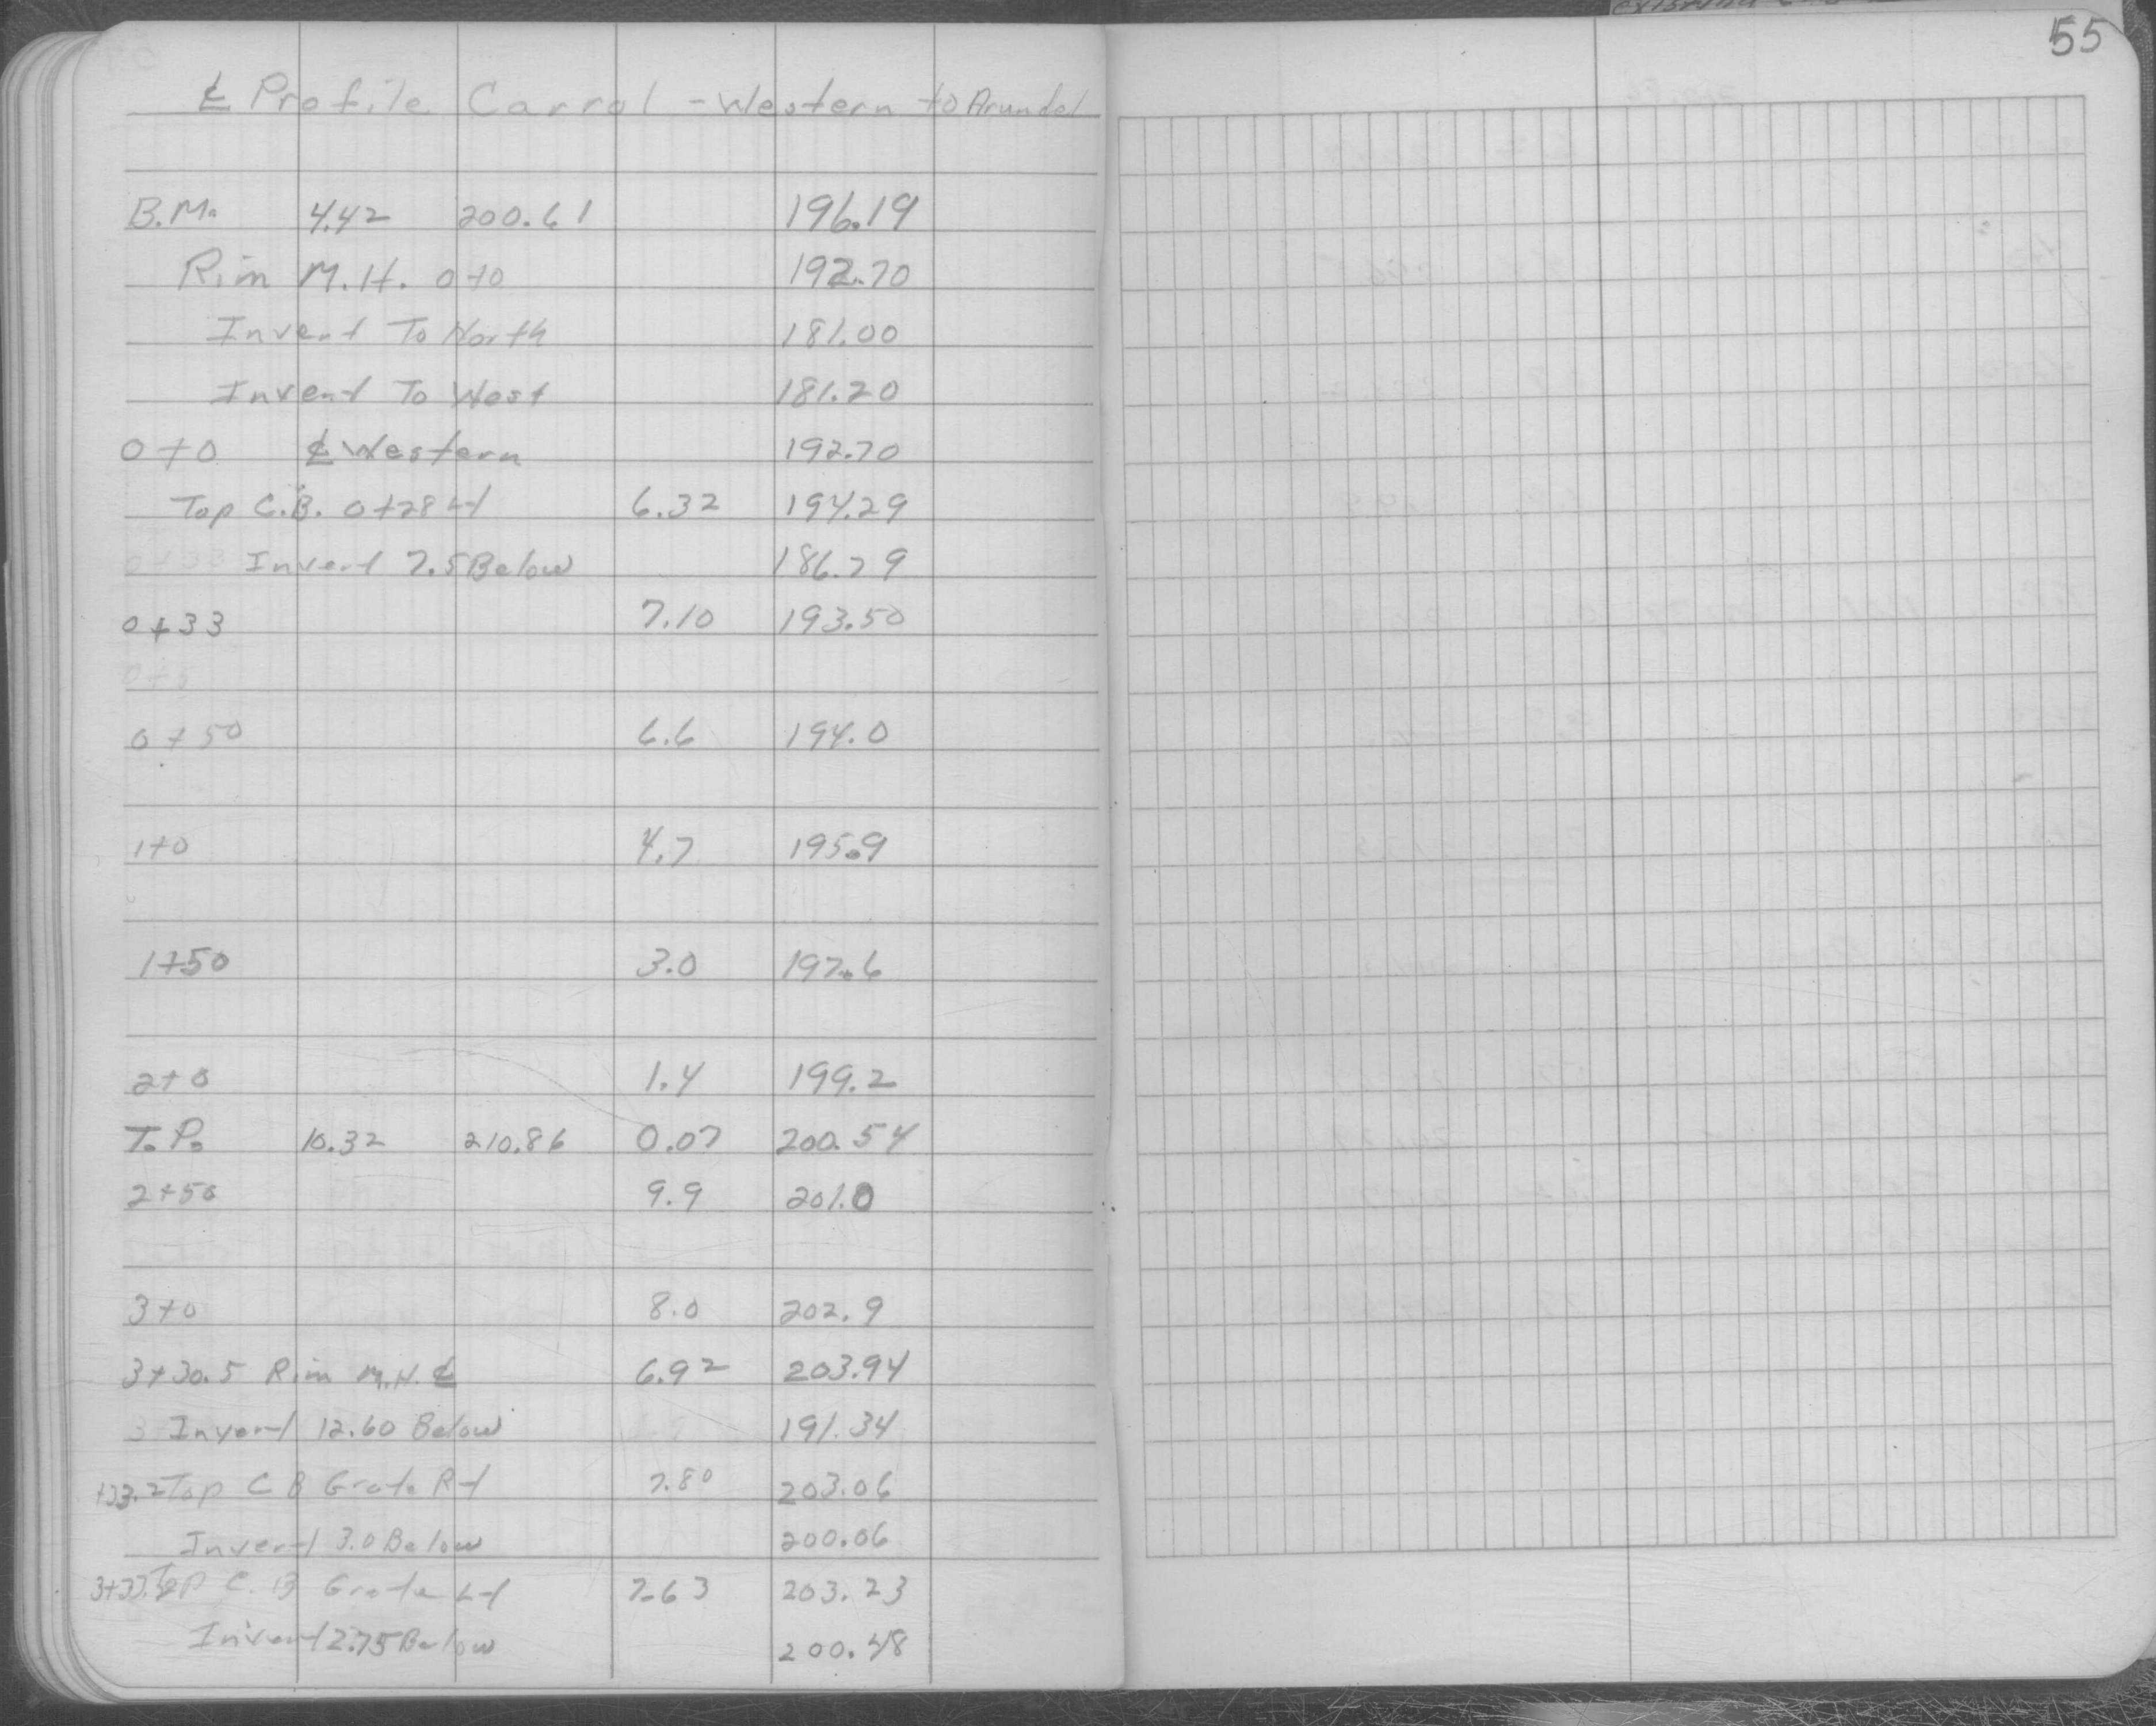 55
℄ Profile Carrol - Western to Arundel
B.M. 4.42 200.61 196.19
Rim M.H. 0+0 192.70
Invert To North 181.00
Invert To West 181.20
0+0 ℄ Western 192.70
Top C.B. 0+28 Lt 6.32 194.29
Invert 7.5 Below 186.79
0+33 7.10 193.50
0+50 6.6 194.0
1+0 4.7 195.9
1+50 3.0 197.6
2+0 1.4 199.2
T.P. 10.32 210.86 0.07 200.54
2+50 9.9 201.0
3+0 8.0 202.9
3+30.5 Rim M.H. ℄ 6.92 203.94
Invert 12.60 Below 191.34
+33.2 Top C B Grate Rt 7.80 203.06
Invert 3.0 Below 200.06
Top C.B Grate Lt 7.63 203.23
Invert 2.75 Below 200.48